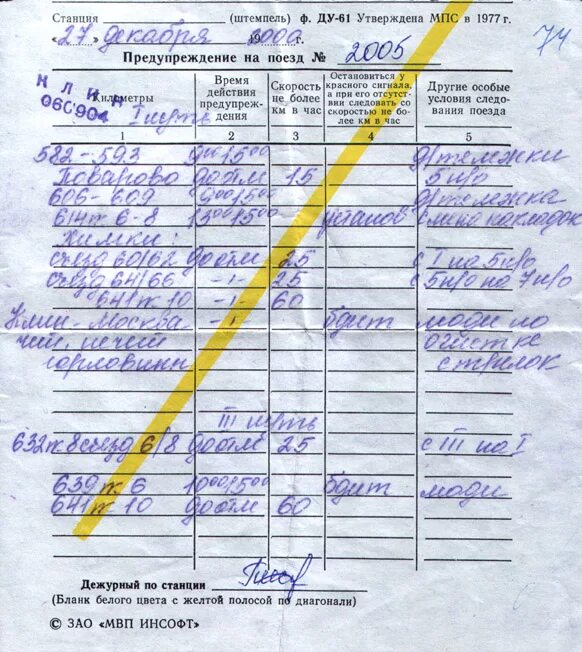 Станция (штемпель) ф. ДУ-61 Утверждена МПС в 1977 г.
«27» декабря 2000 г.
74
Предупреждение на поезд № 2005
КЛИН
060904
Километры
Время действия предупреж-дения
Скорость не более км в час
Остановиться у красного сигнала, а при его отсутст-вии следовать со скоростью не бо-лее км в час
Другие особые условия следо-вания поезда
1 2 3 4 5
I путь
582-593 9⁰⁰ 15⁰⁰ д/тележки
Поварово до отм 15 5 п/о
606-609 9⁰⁰ 15⁰⁰ д/тележка
614 п 6-8 13⁰⁰ 15⁰⁰ установ смена накладок
Химки:
съезд 60/62 до отм 25 с I на 5 п/о
съезд 64/66 -"- 25 с 5 п/о на 7 п/о
641 п 10 -"- 60
Клин-Москва -"- бдит люди по
чий, нечий очистке
горловины стрелок
III путь
632 п 8 съезд 6/8 до отм 25 с III на I
639 п 6 10⁰⁰ 15⁰⁰ бдит люди
641 п 10 до отм 60
Дежурный по станции
(Бланк белого цвета с желтой полосой по диагонали)
© ЗАО «МВП ИНСОФТ»